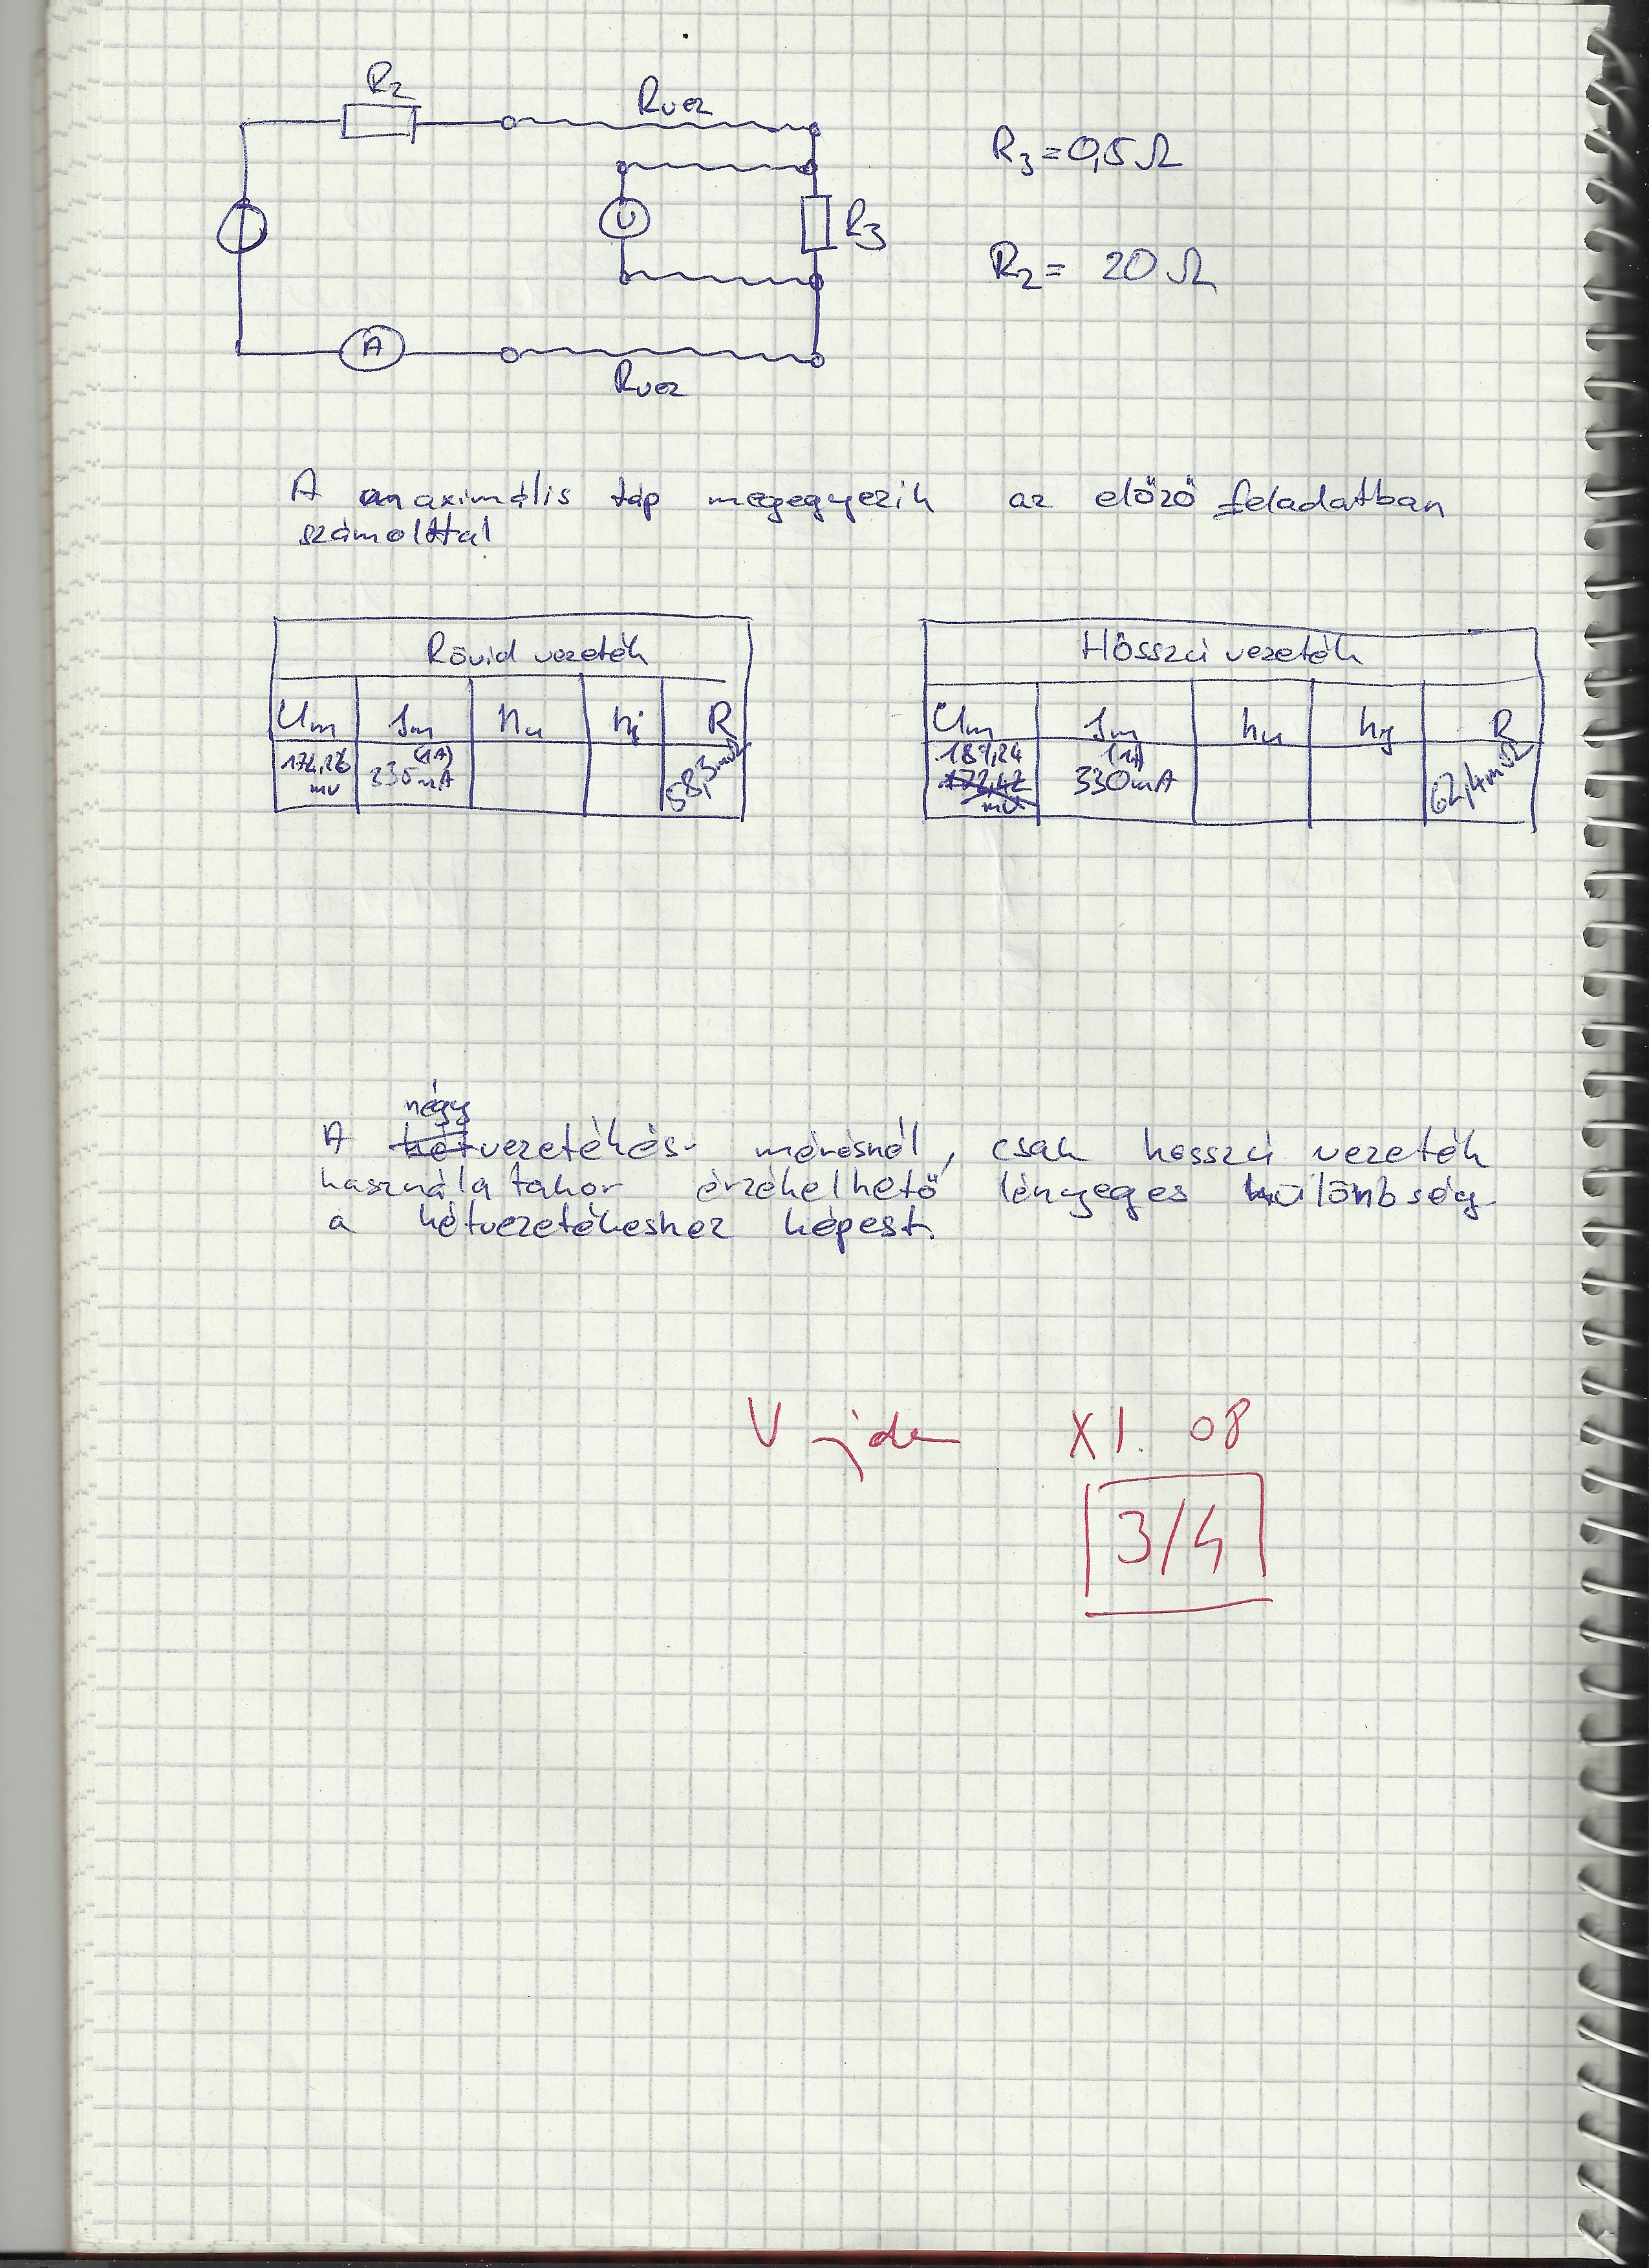 R2
Rvez
R3 = 0,5 Ω
U
R3
R2 = 20 Ω
A
Rvez
A maximális táp megegyezik az előző feladatban
számolttal
Rövid vezeték
Um Im hu hi R
(1A)
mV 330mA 58,3mΩ
Hosszú vezeték
Um Im hu hi R
189,24 (1A)
172,42 330mA 62,4mΩ
mV
négy
A két vezetékes mérésnél, csak hosszú vezeték
használatakor érzékelhető lényeges különbség
a kétvezetékeshez képest.
XI. 08
3/4